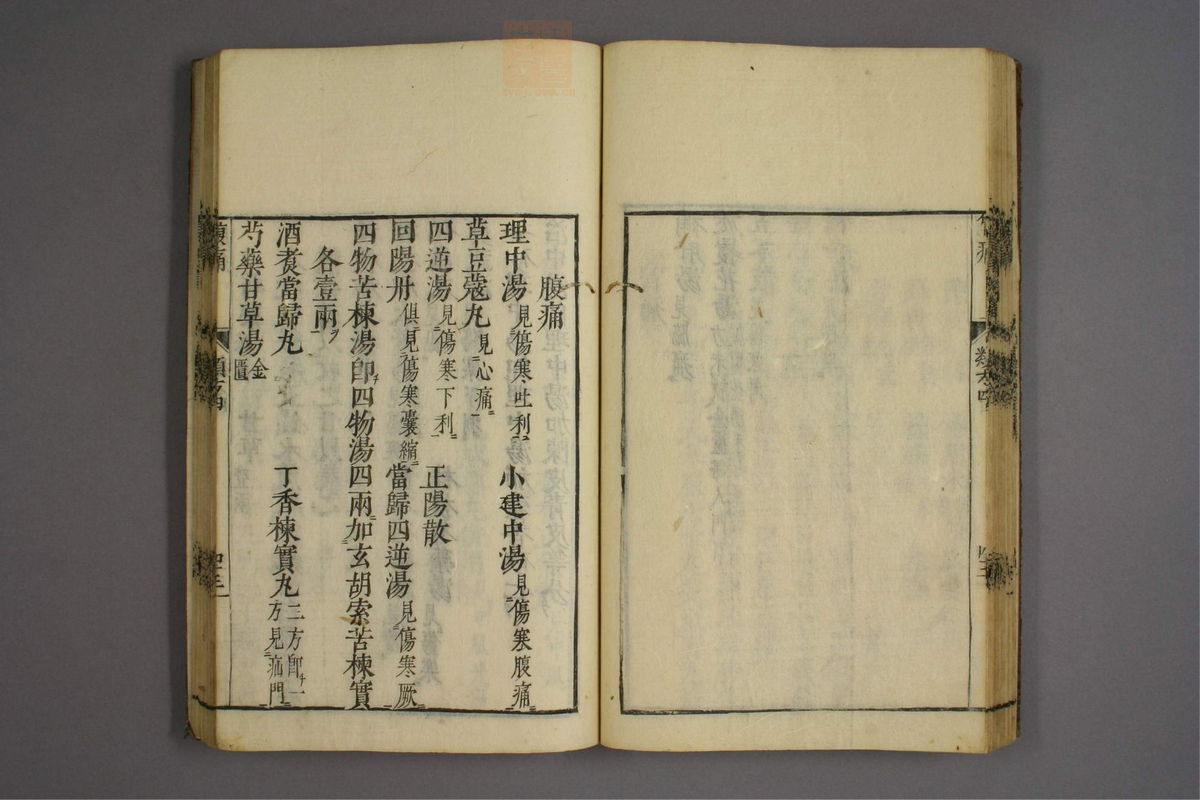 腹痛
理中湯見傷寒吐利 小建中湯見傷寒腹痛
草豆蔻丸見心痛
四逆湯見傷寒下利 正陽散
回陽丹俱見傷寒囊縮 當歸四逆湯見傷寒厥
四物苦楝湯即四物湯四兩加玄胡索苦楝實
各壹兩
酒煑當歸丸 丁香楝實丸二方見疝門
芍藥甘草湯金匱
腹痛